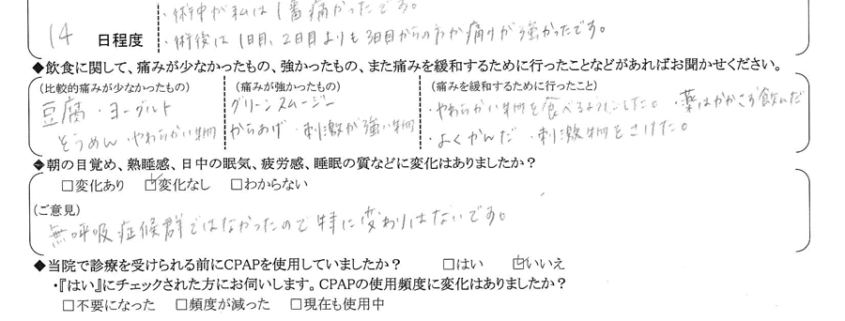 ・術中が私は1番痛かったです。
14 日程度 ・術後は1日目、2日目よりも3日目からの方が痛みが強かったです。
◆飲食に関して、痛みが少なかったもの、強かったもの、また痛みを緩和するために行ったことなどがあればお聞かせください。
(比較的痛みが少なかったもの) (痛みが強かったもの) (痛みを緩和するために行ったこと)
豆腐・ヨーグルト グリーンスムージー ・やわらかい物を食べるようにした。・薬はかかさず飲んだ
そうめん・やわらかい物 からあげ・刺激が強い物 ・よくかんだ ・刺激物をさけた。
◆朝の目覚め、熟睡感、日中の眠気、疲労感、睡眠の質などに変化はありましたか?
□変化あり ☑変化なし □わからない
(ご意見)
無呼吸症候群ではなかったので特に変わりはないです。
◆当院で診療を受けられる前にCPAPを使用していましたか? □はい ☑いいえ
・『はい』にチェックされた方にお伺いします。CPAPの使用頻度に変化はありましたか?
□不要になった □頻度が減った □現在も使用中